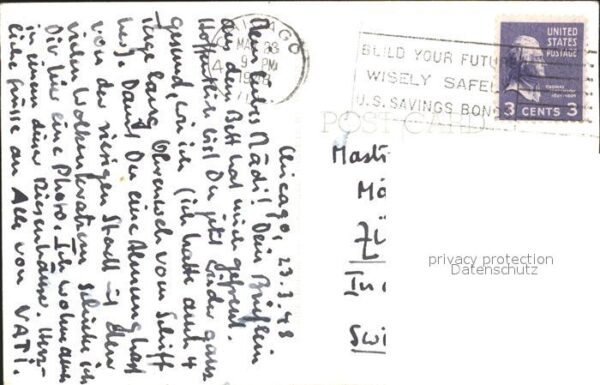 CHICAGO
MAR 23
9 PM
BUILD YOUR FUTURE
WISELY SAFELY
U.S. SAVINGS BONDS
UNITED
STATES
POSTAGE
3 CENTS 3
POST CARD
Chicago, 23.3.48
Mein liebes Mädi! Dein Brieflein
aus dem Bett hat mich gefreut.
Hoffentlich bist Du jetzt wieder ganz
gesund, wie ich (ich hatte auch 4
Tage lang Ohrenweh vom Schiff
her). Damit Du eine Ahnung hast
von der riesigen Stadt mit den
vielen Wolkenkratzern schicke ich
Dir hier eine Photo. Ich wohne auch
in einem dieser Riesenhäuser. Herz-
liche Grüsse an Alle von VATI.
privacy protection
Datenschutz